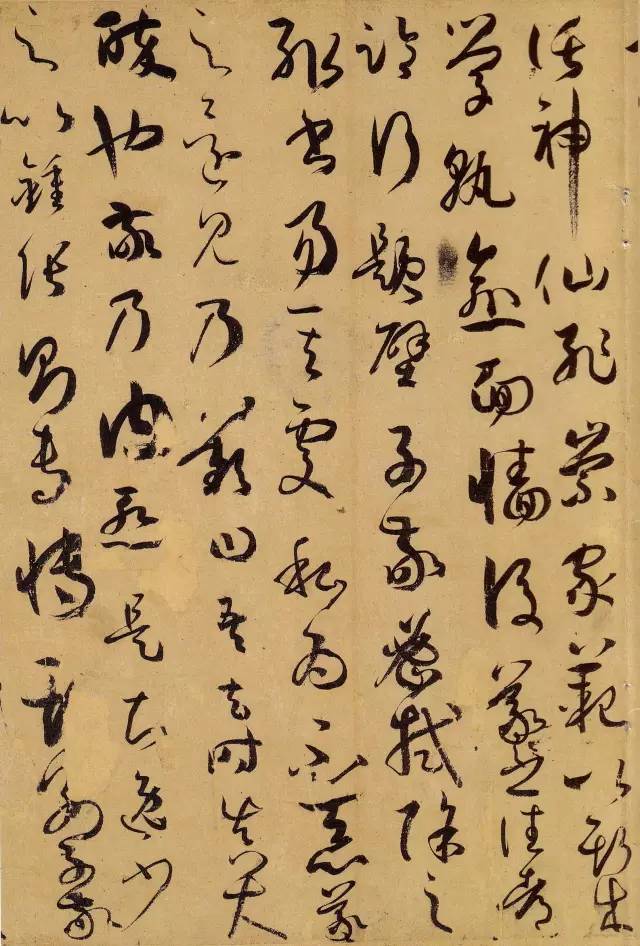 託神仙耻崇家範以斯成
學孰愈面墻後羲之往都
臨行題壁子敬密拭除之
輒書易其處私為不惡羲
之還見乃歎曰吾去時真大
醉也敬乃內慚是知逸少
之比鍾張則專博斯別子敬